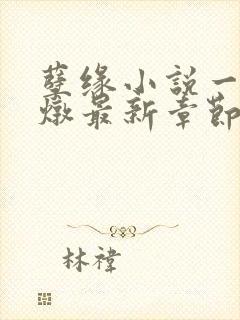 孽缘小説一
燉最新章節
林禕